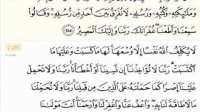 وَمَلَٰٓئِكَتِهِۦ وَكُتُبِهِۦ وَرُسُلِهِۦ لَا نُفَرِّقُ بَيْنَ أَحَدٍ مِّن رُّسُلِهِۦ ۚ وَقَالُوا۟
سَمِعْنَا وَأَطَعْنَا ۖ غُفْرَانَكَ رَبَّنَا وَإِلَيْكَ ٱلْمَصِيرُ ٢٨٥
لَا يُكَلِّفُ ٱللَّهُ نَفْسًا إِلَّا وُسْعَهَا ۚ لَهَا مَا كَسَبَتْ وَعَلَيْهَا مَا
ٱكْتَسَبَتْ ۗ رَبَّنَا لَا تُؤَاخِذْنَآ إِن نَّسِينَآ أَوْ أَخْطَأْنَا ۚ رَبَّنَا وَلَا تَحْمِلْ
عَلَيْنَآ إِصْرًا كَمَا حَمَلْتَهُۥ عَلَى ٱلَّذِينَ مِن قَبْلِنَا ۚ رَبَّنَا وَلَا تُحَمِّلْنَا
مَا لَا طَاقَةَ لَنَا بِهِۦ ۖ وَٱعْفُ عَنَّا وَٱغْفِرْ لَنَا وَٱرْحَمْنَآ ۚ أَنتَ مَوْلَىٰنَا